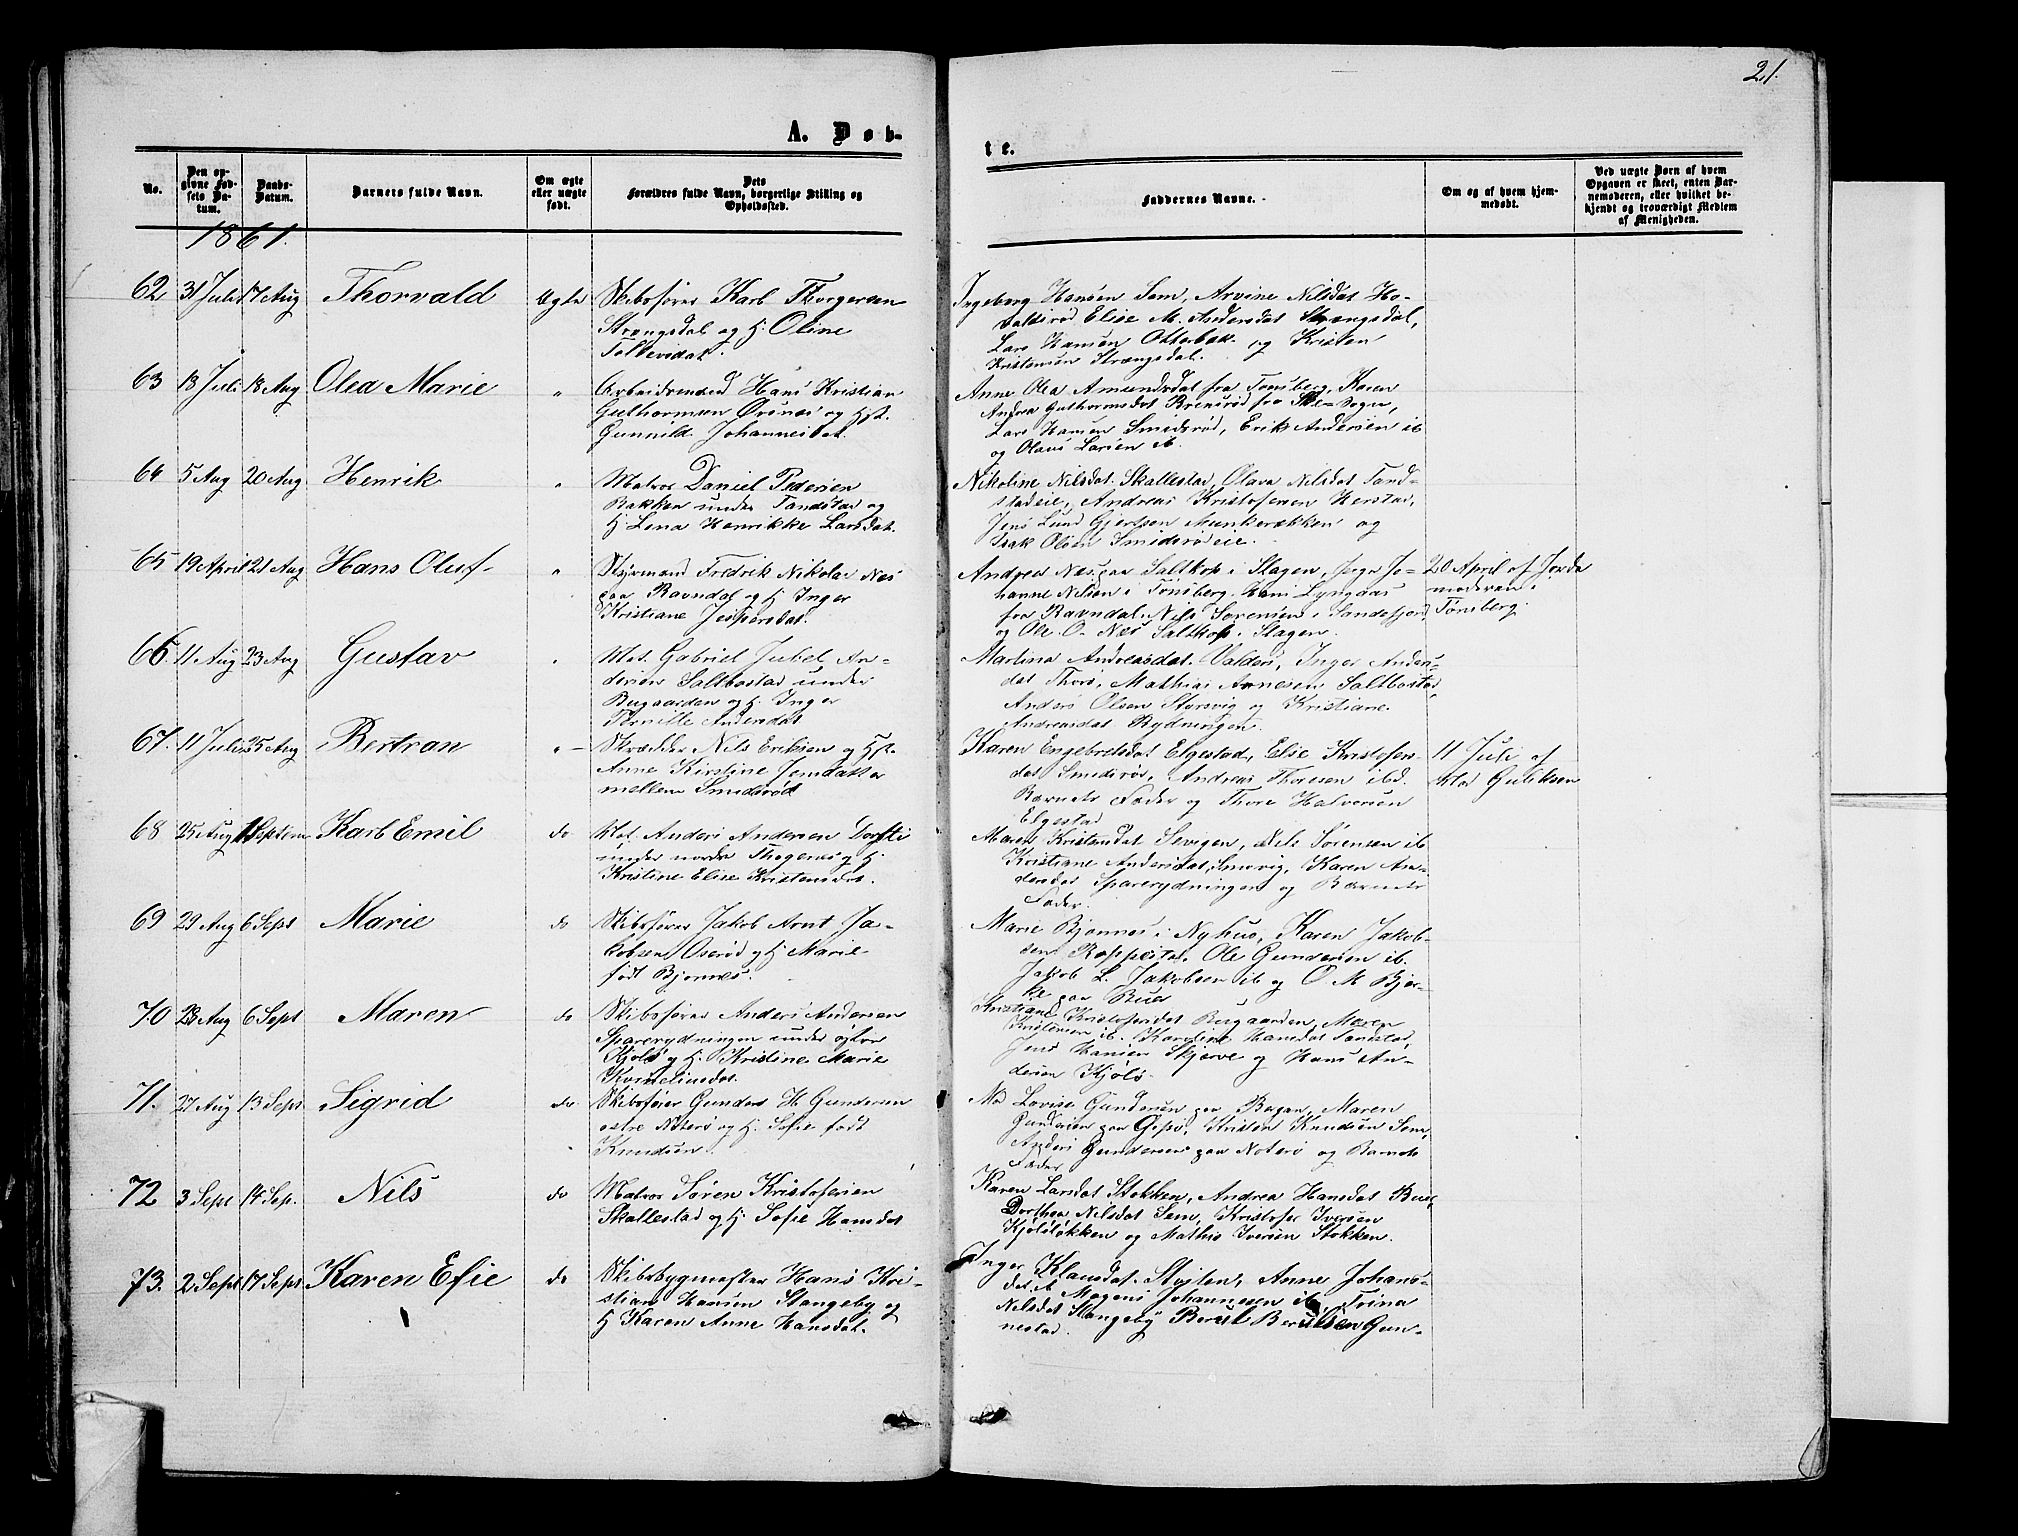 21.
A. Døb-
te.
No.
Den op-
givne Fød-
sels Da-
tum.
Daabs-
Datum.
Barnets fulde Navn.
Om ægte
eller uægte
født.
Dets
Forældres fulde Navn, borgerlige Stilling og
Opholdssted.
Faddernes Navne.
Om og af hvem hjem-
medøbt.
Ved uægte Børn af hvem
Opgaven er skeet, enten Bar-
nemoderen, eller hvilket be-
kjendt og troværdigt Medlem
af Menigheden.
1861.
62 31 Juli 17 Aug Thorvald Ægte Skibsfører Karl Thorgersen
Strængsdal og H. Oline
Tollevsdat.
Ingeborg Hansen Sem, Arvine Nilsdat Ho-
Elise M. Andersdat Strængsdal,
Lars Hansen Otterbæk og Kristen
Kristensen Strængsdal.
63 13 Juli 18 Aug Olea Marie " Arbeidsmand Hans Kristian
Guthormsen Ørsnes og Hst.
Gunnild Johannesdat.
Anne Olea Amundsdat fra Tønsberg, Karen
Andrea Guthormsdat Brensrød fra Sogn,
Lars Hansen Smidsrød, Erik Andersen ib
og Olaus Larsen ib.
64 5 Aug 20 Aug Henrik " Matros Daniel Pedersen
Bakken under Tandstad og
H. Lena Henrikke Larsdat.
Nikoline Nilsdat. Skallestad, Olava Nilsdat Tand-
stadeie, Andreas Kristofersen Herstad,
Jens Lund Gjertsen Munkerækken og
Isak Olsen Smidsrødeie.
65 19 April 21 Aug Hans Oluf " Styrmand Fredrik Nikolai Næs
paa Ravndal og H. Inger
Kristiane Jespersdat.
Andrea Næs paa Saltkop i Slagen, Jo-
hanne Nilsen i Tønsberg, Hans Lyngaas
fra Ravndal, Nils Sørensen i Sandefjord,
og Ole O. Næs Saltkop i Slagen.
20 April af Jorde
moderen i
Tønsberg.
66. 11 Aug 23 Aug Gustav " Mat. Gabriel Jubel An-
dersen Saltbostad under
Bugaarden og H. Inger
Pernille Andersdat
Martina Andreasdat. Valders, Inger Anders-
dat Thorø, Mathias Arnesen Saltbostad
Anders Olsen Storsvig og Kristiane
Andreasdat Rydningen.
67. 11 Juli 25 Aug Bertran " Skrædder Nils Eriksen og Hst.
Anne Kirstine Jensdatter
mellem Smidsrød
Karen Engebretsdat Elgestad, Else Kristofers-
dat Smidsrød, Andreas Thoresen ibd.
Barnets Fader og Thore Halvorsen
Elgestad
11 Juli af
Guliksen
68 25 Aug 1 Septem Karl Emil do Mat. Anders Andersen Dorsti
under nordre Thogenes og H.
Kristine Elise Kristensdat.
Maren Kristensdat Sevigen, Nils Sørensen ib
Kristiane Andersdat Smovig, Karen An-
dersdat Sparerydningen og Barnets
Fader.
69 29 Aug 6 Sept Marie do Skibsfører Jakob Arnt Ja-
kobsen Oserød og H. Marie
født Bjønnes.
Marie Bjønnes i Nyhus, Karen Jakob-
sen Roppestad, Ole Gundersen ib.
Jakob L. Jakobsen ib og O M Bjer-
ke paa Buer
70 28 Aug 6 Sept Maren do Skibsfører Anders Andersen
Sparerydningen under østre
Kjølø og H. Kristine Marie
Korneliusdat.
Kristiane Kristofersdat Bugaarden, Maren
Kristensen ib. Karoline Hansdat Sandstad,
Jens Hansen Skjerve og Hans An-
dersen Kjølø.
71. 27 Aug 13 Sept Sigrid do Skibsfører Gunders H Gundersen
østre Nøterø og H. Sofie født
Knudsen.
Lovise Gundersen paa Bogan, Maren
Gundersen paa Gipø, Kristen Knudsen Sem,
Anders Gundersen paa Nøterø og Barnets
Fader
72 3 Sept 14 Sep. Nils do Matros Søren Kristofersen
Skallestad og H. Sofie Hansdat
Karen Larsdat Stokken, Andrea Hansdat Buer,
Dorthea Nilsdat Sem, Kristofer Iversen
Kjølsløkken og Mathis Iversen Stokken.
73. 2 Sept 17 Sept Karen Efie do Skibsbygmester Hans Kri-
stian Hansen Stangeby og
H Karen Anne Hansdat.
Inger Klausdat. Sløiten, Anne Johans-
dat Mogens Johannesen ib, Trina
Nilsdat Stangeby Berul Berulsen Gun-
nestad.